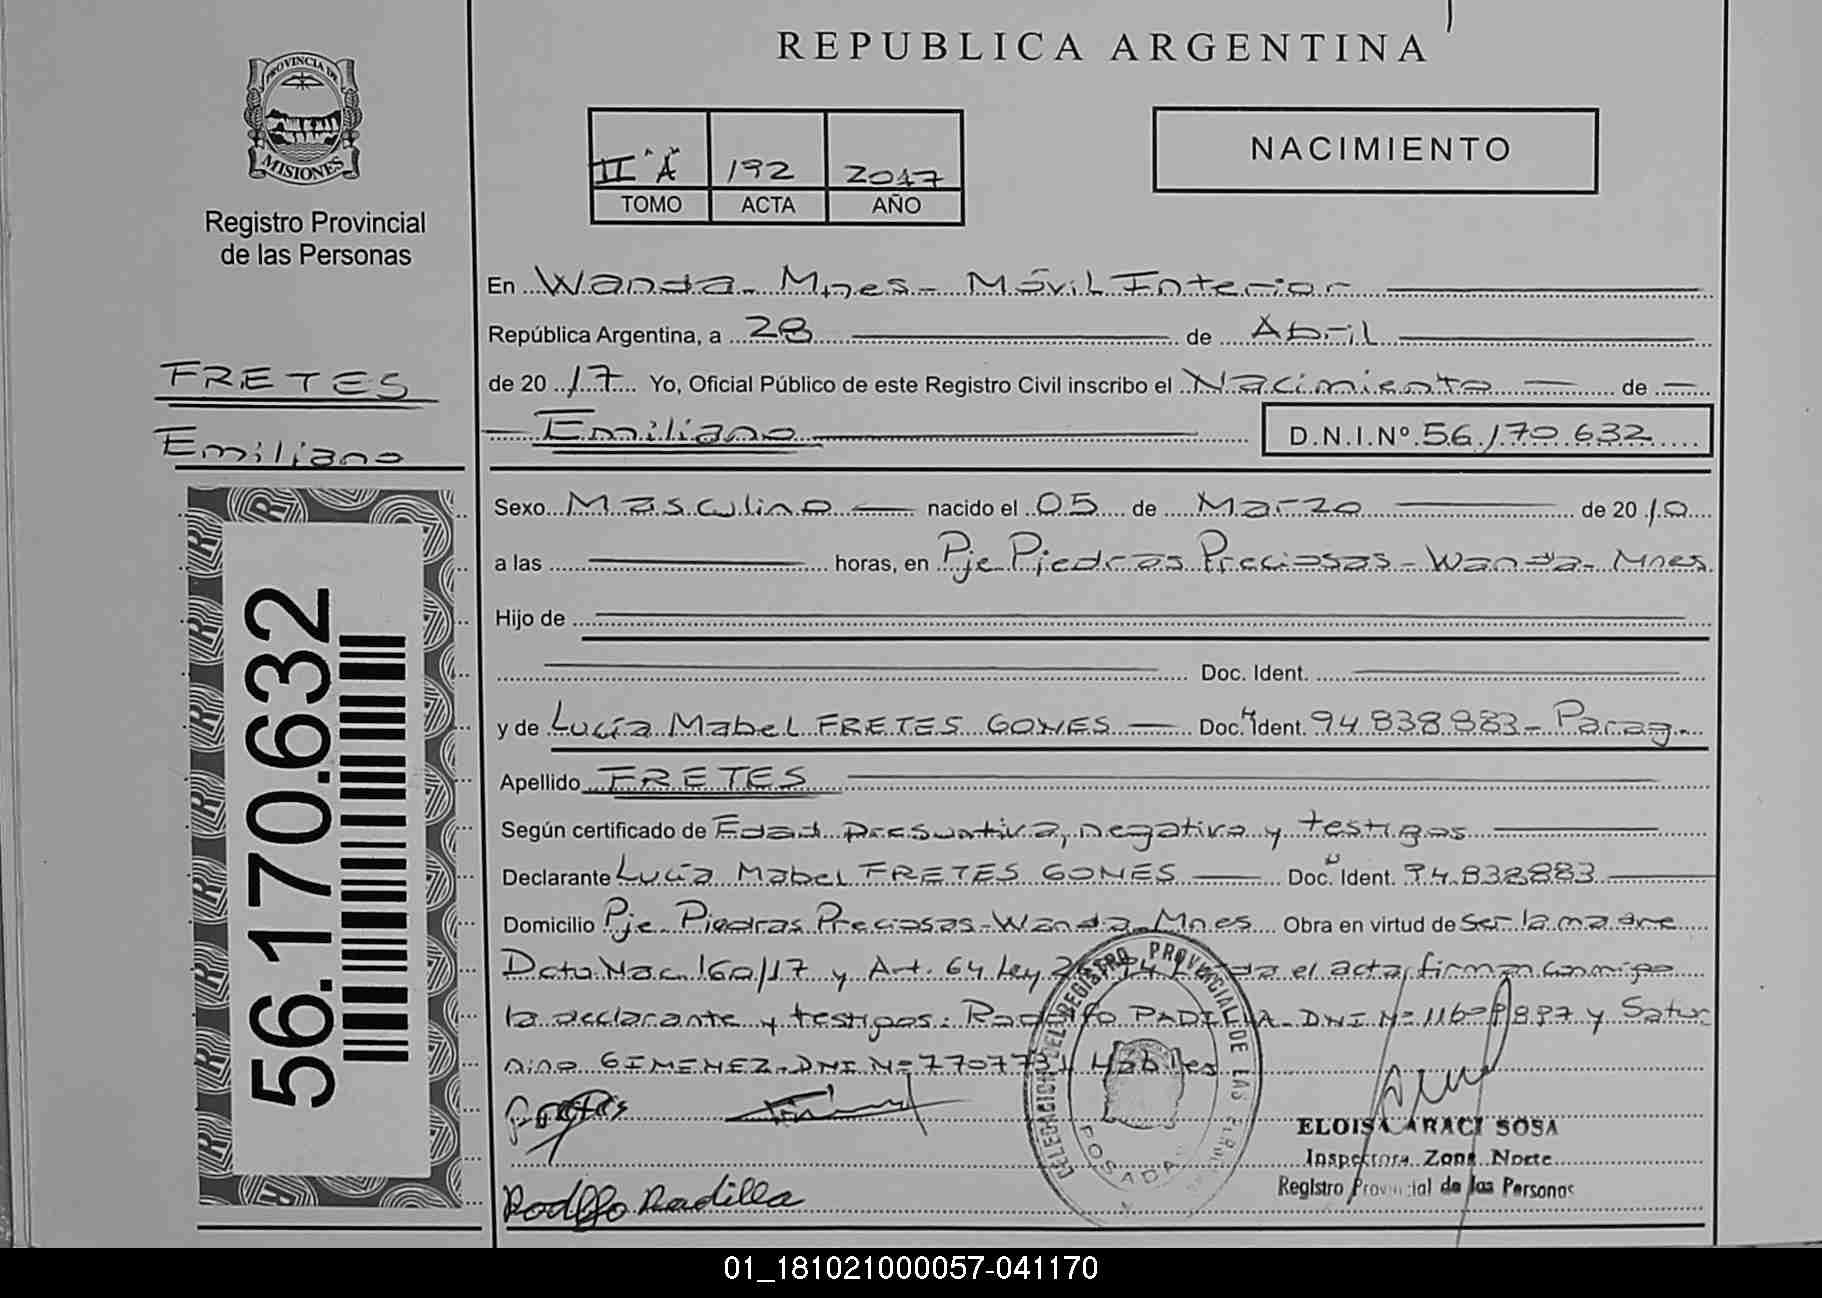 PROVINCIA DE
MISIONES
Registro Provincial
de las Personas
FRETES
Emiliano
56.170.632
REPUBLICA ARGENTINA
II "A" 192 2017
TOMO ACTA AÑO
NACIMIENTO
En Wanda - Mnes - Móvil Interior
República Argentina, a 28 de Abril
de 2017 Yo, Oficial Público de este Registro Civil inscribo el Nacimiento de
Emiliano D.N.I.Nº 56.170.632
Sexo Masculino nacido el 05 de Marzo de 2010
a las horas, en Pje Piedras Preciosas - Wanda - Mnes
Hijo de
Doc. Ident.
y de Lucía Mabel FRETES GOMES Doc. Ident. 94.838.883 - Parag.
Apellido FRETES
Según certificado de Edad presuntiva, negativa y testigos
Declarante Lucía Mabel FRETES GOMES Doc. Ident. 94.838883
Domicilio Pje Piedras Preciosas - Wanda - Mnes Obra en virtud de Ser la madre
Dcto. Nac. 160/17 y Art. 64 Ley el acta, firman conmigo
la declarante y testigos: Rodolfo PADILLA - DNI Nº y Satur
nino GIMENEZ - DNI Nº Hábiles
Rodolfo Padilla
DELEGACION DEL REGISTRO PROVINCIAL DE LAS PERSONAS
POSADAS
ELOISA ARACI SOSA
Inspectora Zona Norte
Registro Provincial de las Personas
01_181021000057-041170